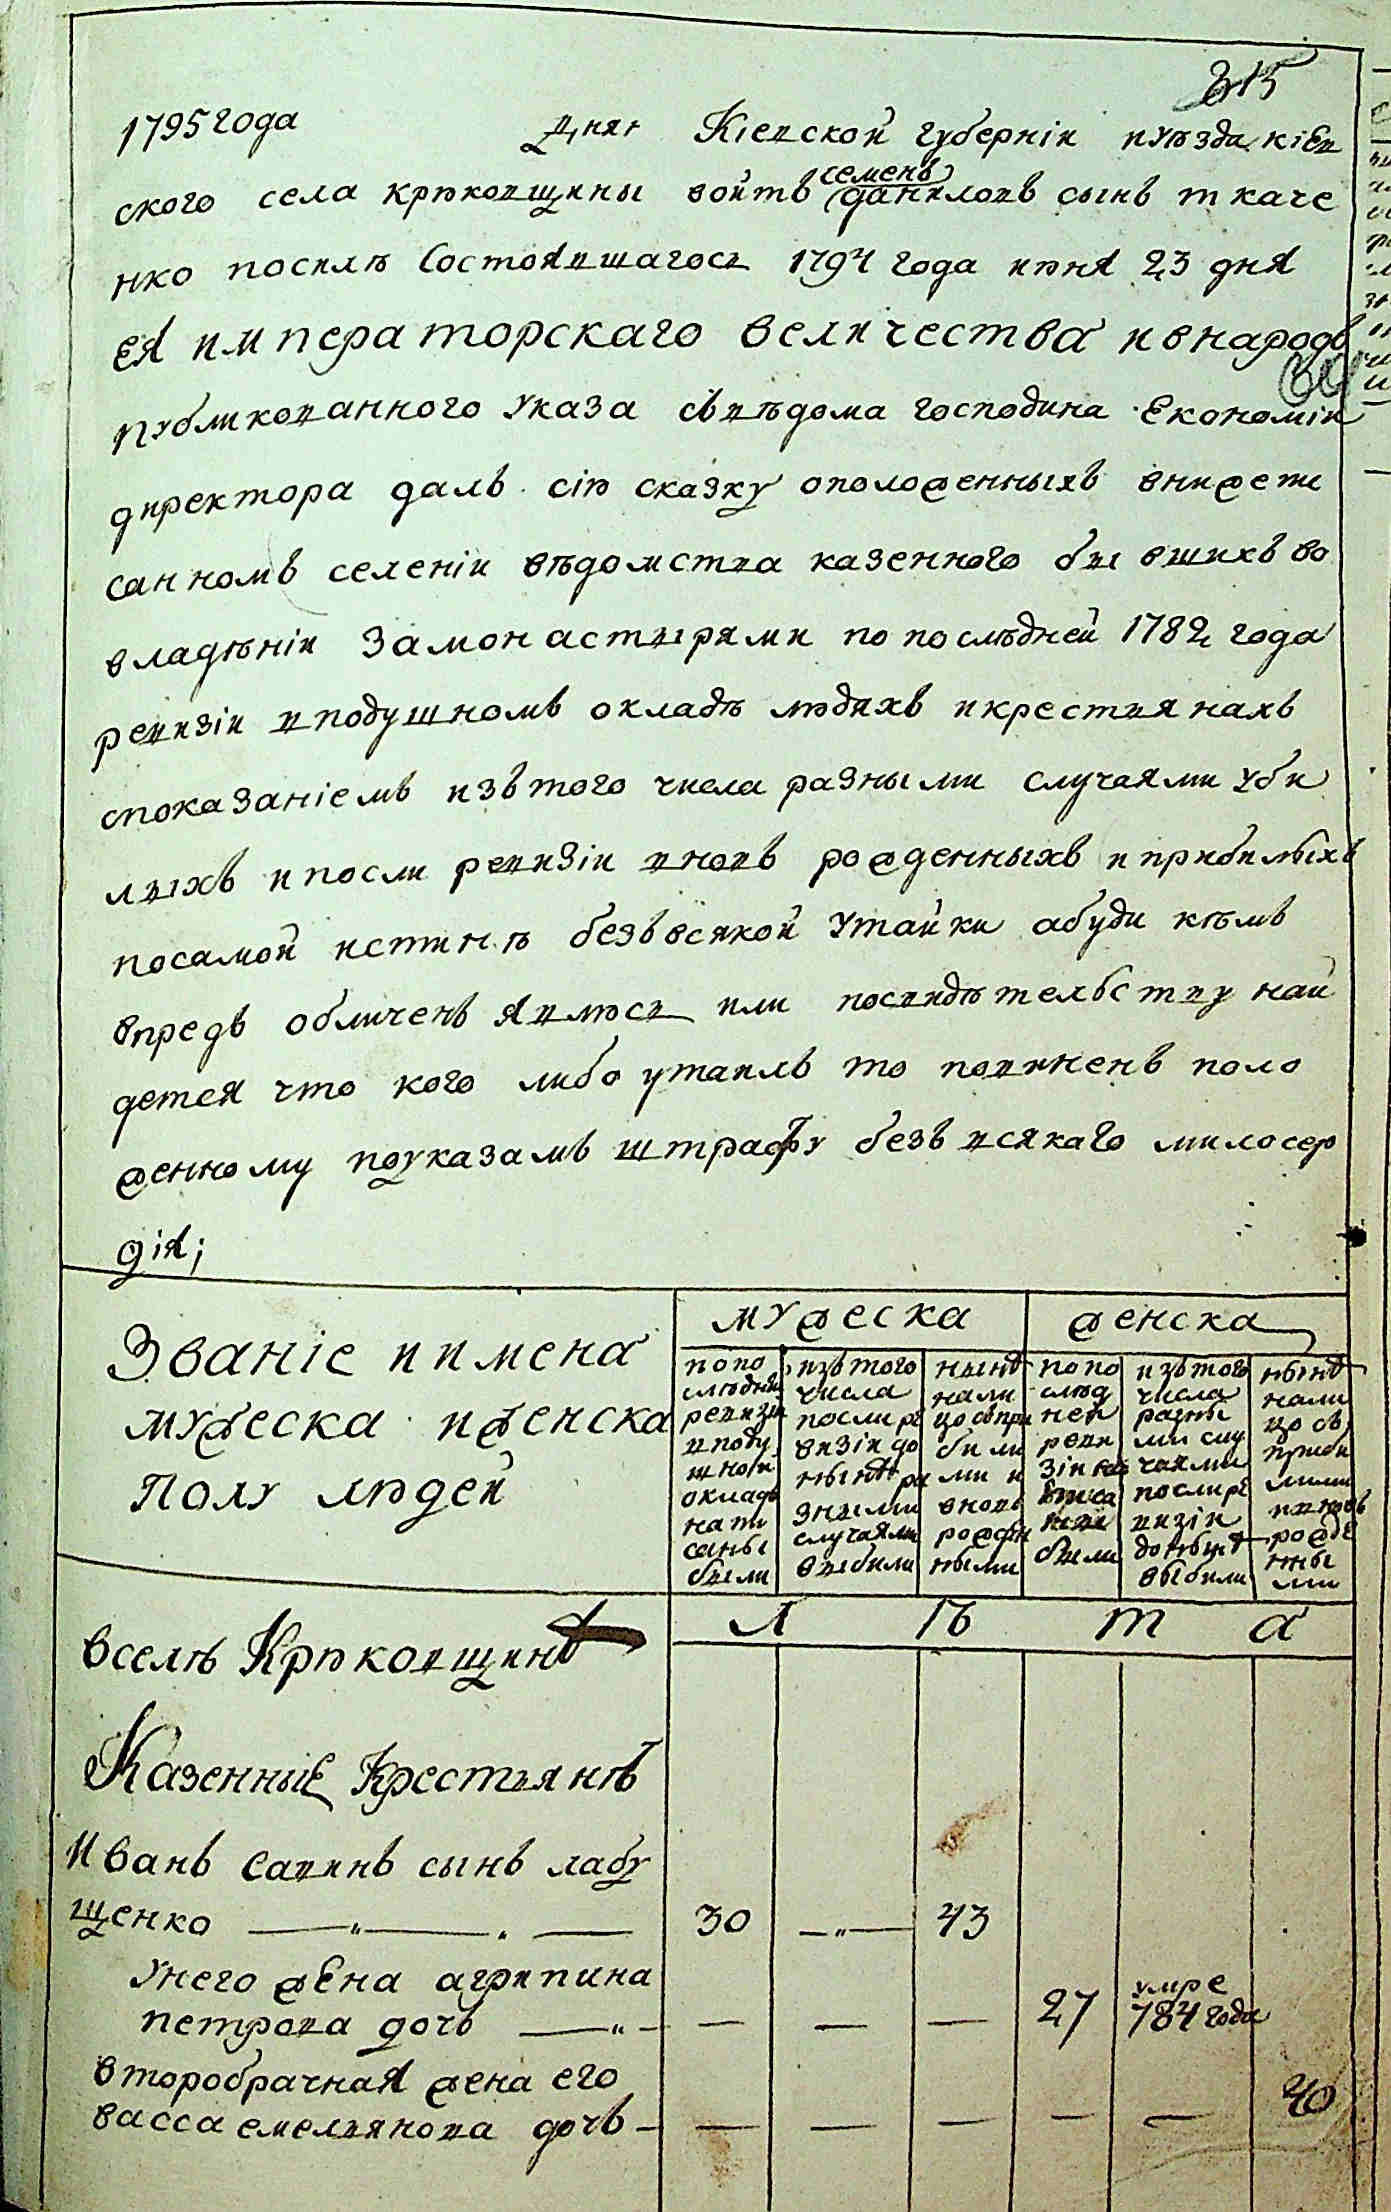 315
1795 года дня Кіевской губерніи и уѣзда кіев
семенъ
ского села крюковщины войтъ даниловъ сынъ ткаче
нко посилѣ состоявшагось 1794 года июня 23 дня
ея императорскаго величества ивнародъ
публикованного указа свѣдома господина економіи
директора далъ сію сказку оположенныхъ внижепи
санномъ селеніи вѣдомства казенного бывшихъ во
владѣніи замонастырями по послѣдней 1782 года
ревизіи вподушномъ окладѣ людяхъ икрестьянахъ
споказаніемъ изътого числа разными случаями уби
лыхъ ипосли ревизіи вновь рожденныхъ иприбилыхъ
посамой истиннѣ безъвсякой утайки абуди кѣмъ
впредъ обличенъ явлюсь или посвидѣтельству най
детея что кого либо утаилъ то повиненъ поло
женному поуказамъ штрафу безъ всякаго милосер
дія;
Званіе иимена
мужеска иженска
полу людей
мужеска женска
попо слѣдней ревизіи вподушномъ окладѣ напи саны были
изътого числа послире визіи до нынѣ ра зными случаями выбили
нынѣ нали цо съпри были ми и вновь рожден ными
попо слѣд ней реви зіи написа ны были
изътого числа разны ми слу чаями послире визіи донынѣ выбили
нынѣ нали цо съ приби лими ивновь рожде нны ми
Л ѣ т а
вселѣ Крюковщинѣ
Казенные Крестьянѣ
Иванъ савинъ сынъ лабу
щенко — „ — . — 30 — „ — 43
унего жена агрипина умре
петрова дочь — „ — — — — 27 784 года
второбрачная жена его
васса емельянова дочъ — — — — — — 40